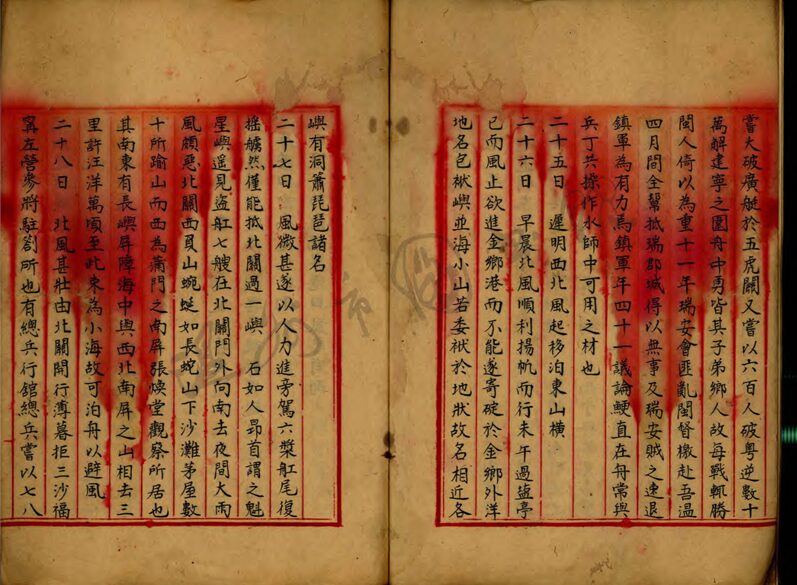 嘗大破廣艇於五虎關又嘗以六百人破粵逆數十
萬解建寧之圍舟中勇皆其子弟鄉人故每戰輒勝
閩人倚以為重十一年瑞安會匪亂閩督檄赴吾溫
四月間全幫抵瑞郡城得以無事及瑞安賊之速退
鎮軍為有力焉鎮軍年四十一議論鯁直在舟常與
兵丁共操作水師中可用之材也
二十五日　遲明西北風起移泊東山橫
二十六日　早晨北風順利揚帆而行未午過盐亭
已而風止欲進金鄉港而不能遂寄碇於金鄉外洋
地名包袱嶼並海小山若委袱於地狀故名相近各
嶼有洞簫琵琶諸名
二十七日　風微甚遂以人力進旁駕六槳舡尾復
搖艣然僅能抵北關過一嶼　石如人昂首謂之魁
星嶼遥見盜舡七艘在北關門外向南去夜間大雨
風頗惡北關西負山蜿蜒如長蛇山下沙灘茅屋數
十所踰山而西為蒲門之南屏張煥堂觀察所居也
其南東有長嶼屏障海中與西北南屏之山相去三
里許汪洋萬頃至此束為小海故可泊舟以避風
二十八日　北風甚壯由北關開行薄暮拒三沙福
寧左營參將駐劄所也有總兵行館總兵嘗以七八